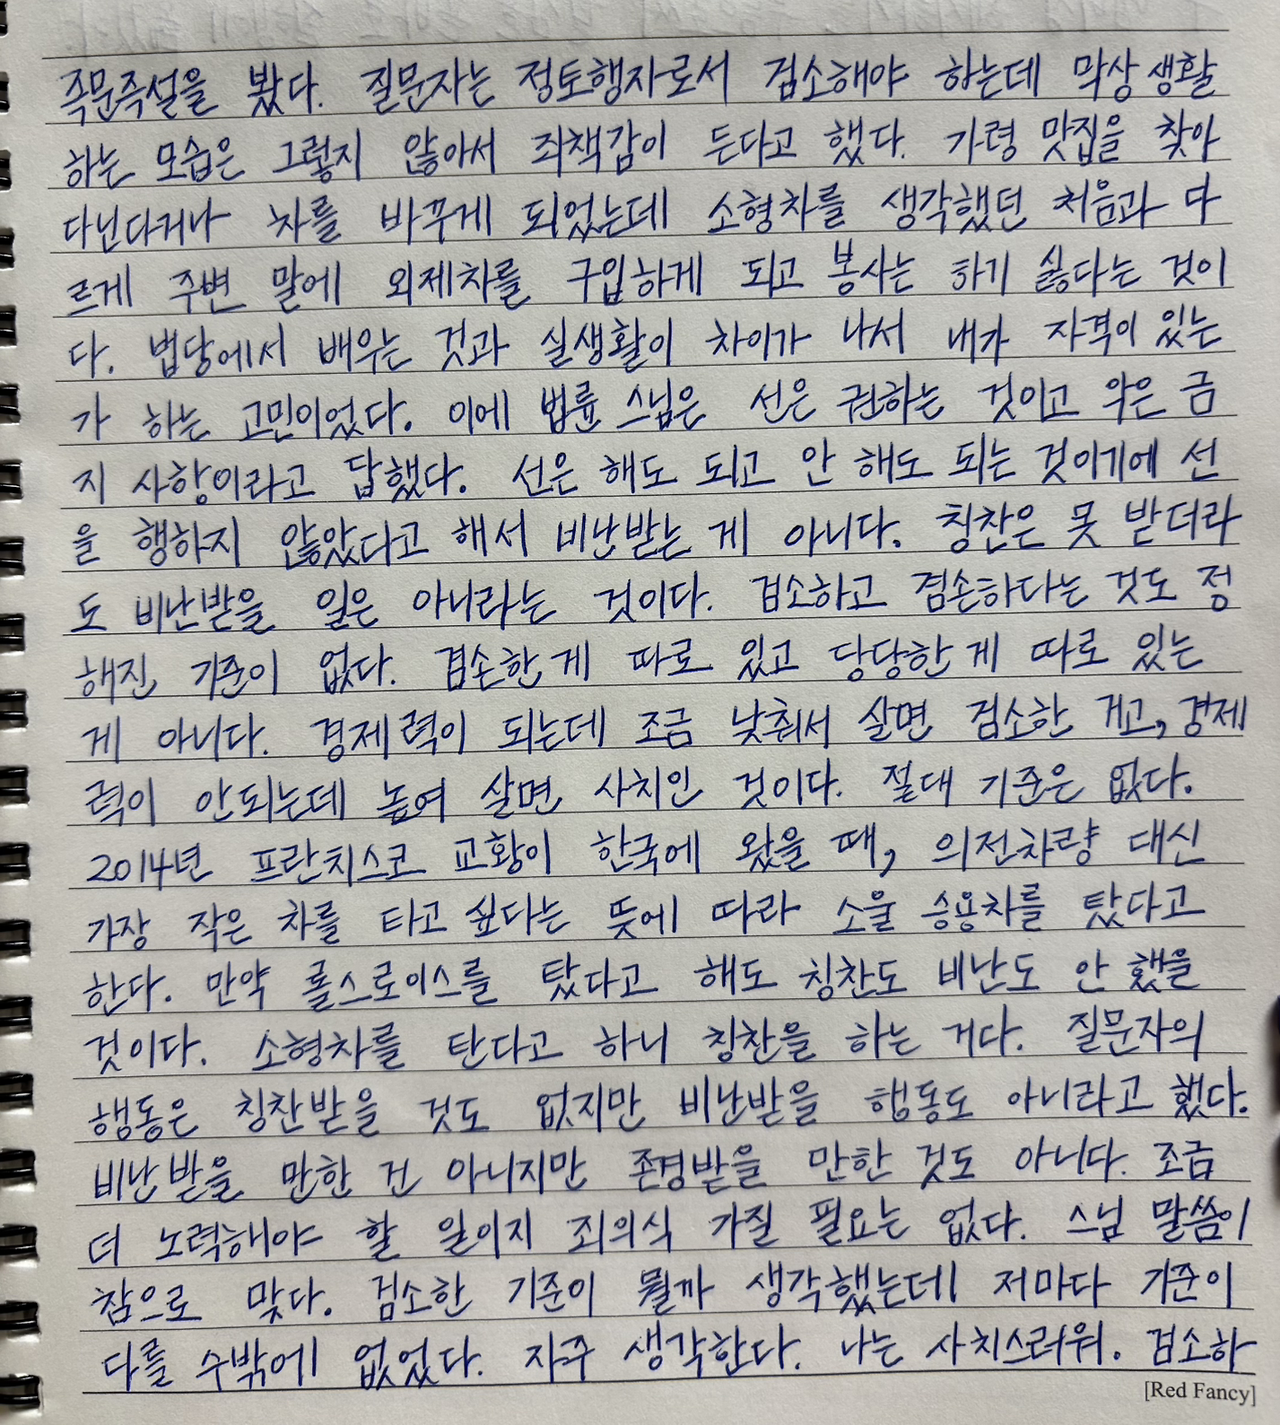 즉문즉설을 봤다. 질문자는 정토행자로서 검소해야 하는데 막상 생활
하는 모습은 그렇지 않아서 죄책감이 든다고 했다. 가령 맛집을 찾아
다닌다거나 차를 바꾸게 되었는데 소형차를 생각했던 처음과 다
르게 주변 말에 외제차를 구입하게 되고 봉사는 하기 싫다는 것이
다. 법당에서 배우는 것과 실생활이 차이가 나서 내가 자격이 있는
가 하는 고민이었다. 이에 법륜 스님은 선은 권하는 것이고 악은 금
지 사항이라고 답했다. 선은 해도 되고 안 해도 되는 것이기에 선
을 행하지 않았다고 해서 비난받는 게 아니다. 칭찬은 못 받더라
도 비난받을 일은 아니라는 것이다. 검소하고 겸손하다는 것도 정
해진 기준이 없다. 겸손한 게 따로 있고 당당한 게 따로 있는
게 아니다. 경제력이 되는데 조금 낮춰서 살면 검소한 거고, 경제
력이 안되는데 높여 살면 사치인 것이다. 절대 기준은 없다.
2014년 프란치스코 교황이 한국에 왔을 때, 의전차량 대신
가장 작은 차를 타고 싶다는 뜻에 따라 소울 승용차를 탔다고
한다. 만약 롤스로이스를 탔다고 해도 칭찬도 비난도 안 했을
것이다. 소형차를 탄다고 하니 칭찬을 하는 거다. 질문자의
행동은 칭찬받을 것도 없지만 비난받을 행동도 아니라고 했다.
비난받을 만한 건 아니지만 존경받을 만한 것도 아니다. 조금
더 노력해야 할 일이지 죄의식 가질 필요는 없다. 스님 말씀이
참으로 맞다. 검소한 기준이 뭘까 생각했는데 저마다 기준이
다를 수밖에 없었다. 자주 생각한다. 나는 사치스러워. 검소하
[Red Fancy]